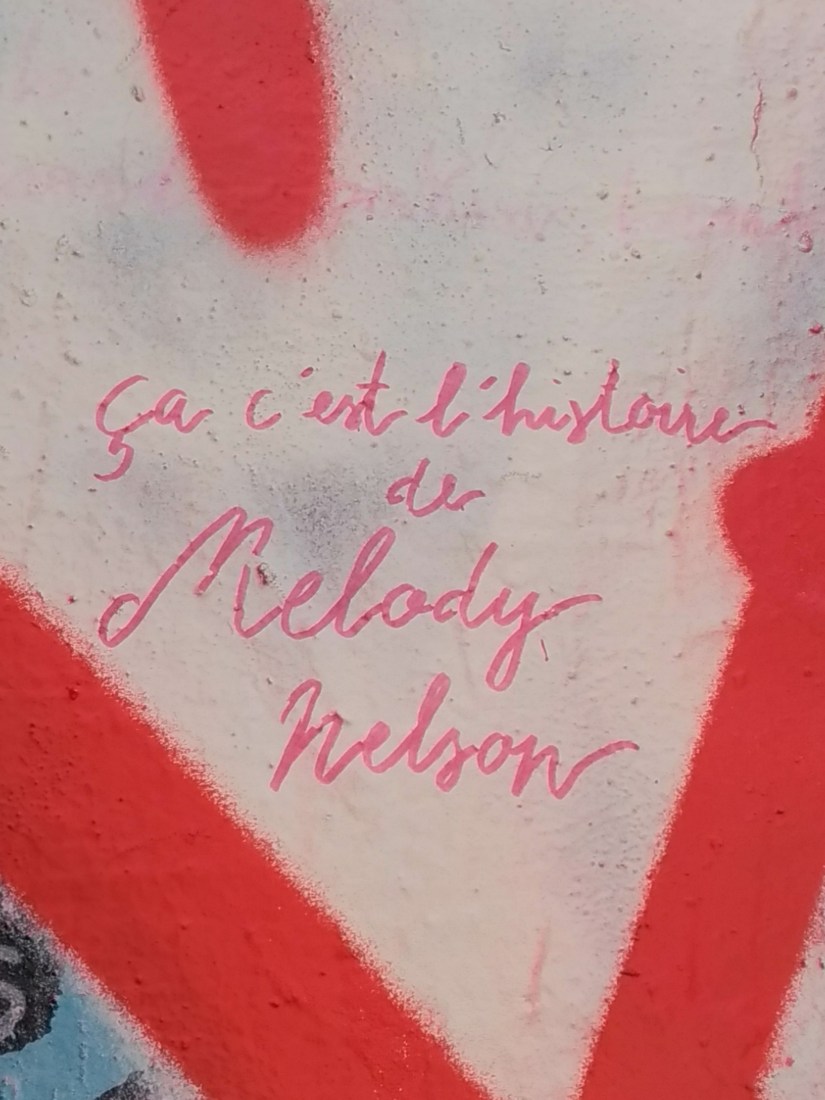 ça c'est l'histoire
de
Melody
Nelson